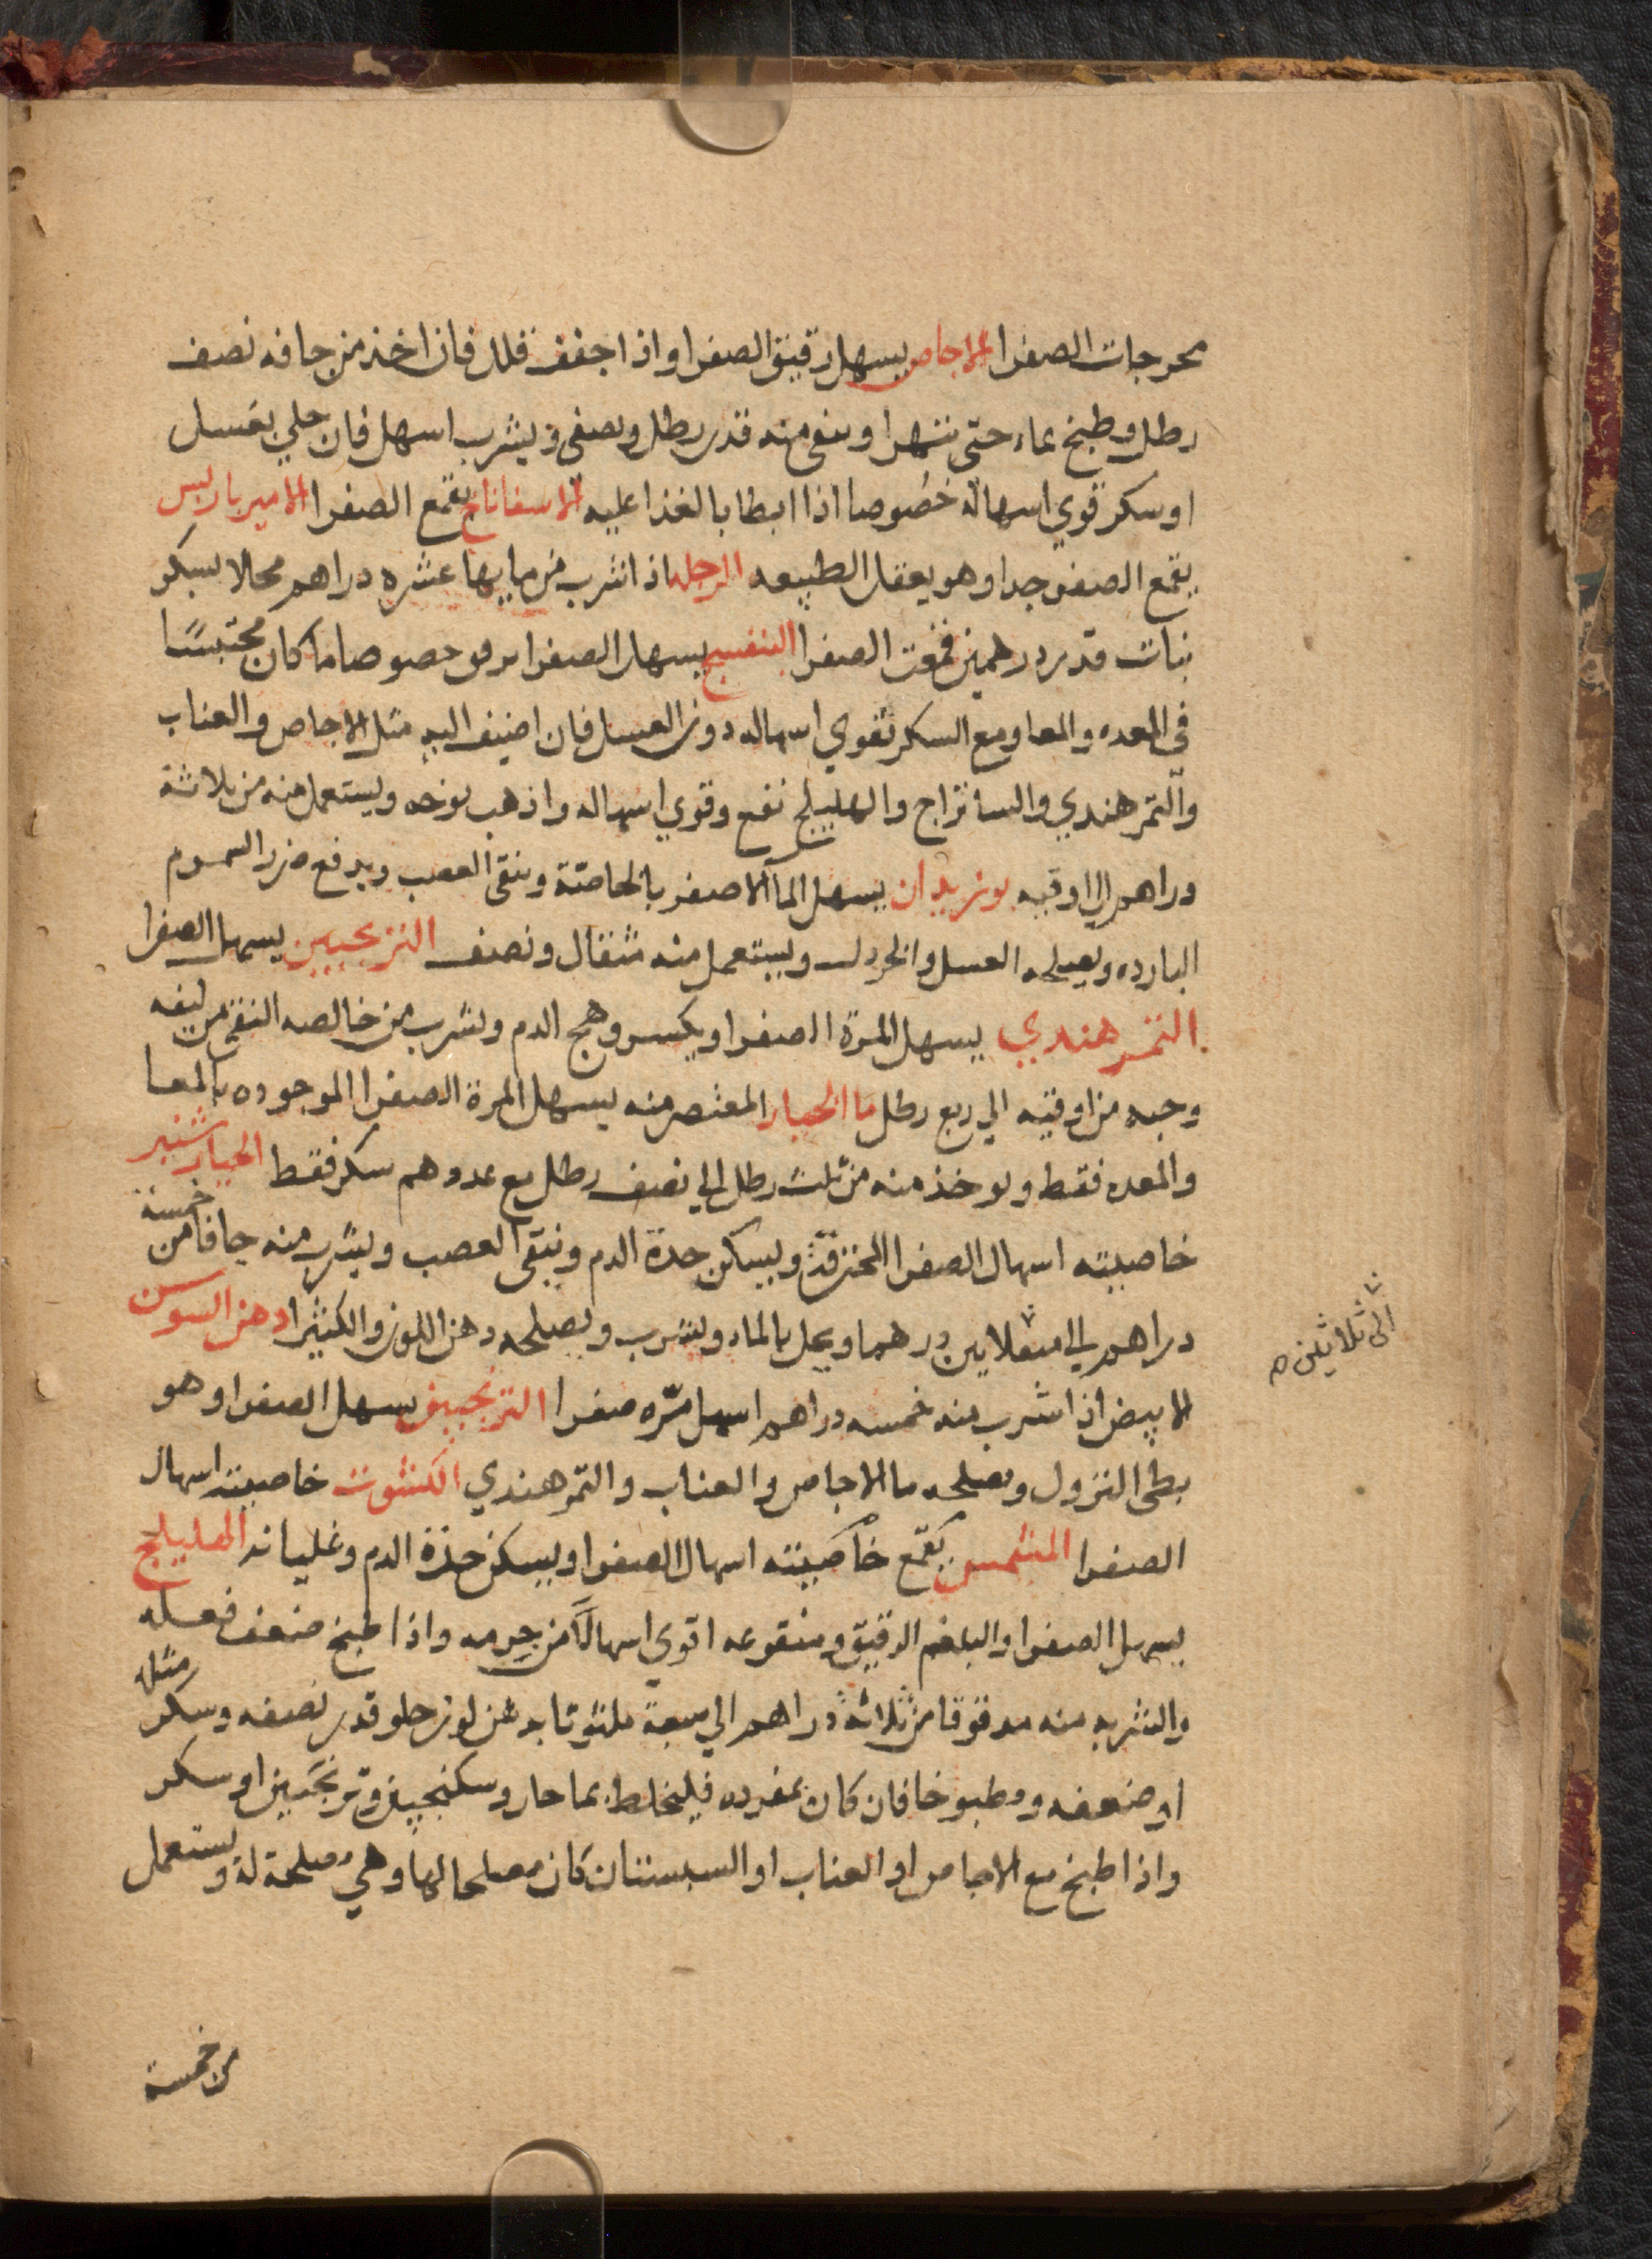 محرجات الصفرا الاجاص يسهل رقيق الصفرا واذا جفف قلل فان اخذ من جافه نصف
رطل وطبخ بماء حتى يتهرا وبقى منه قدر رطل وصفى ويشرب اسهل فان حلي بعسل
او سكر قوي اسهاله خصوصا اذا ابطا بالغذا عليه الاسفاناخ يقمع الصفرا الامير باريس
يقمع الصفر جدا وهو يعقل الطبيعه الرجله اذا شرب من مايها عشره دراهم محلا بسكر
نبات قدر درهمين قمعت الصفرا البنفسج يسهل الصفرا برفق خصوصا ما كان محتبسًا
في المعده والمعا ومع السكر تقوي اسهاله دون العسل فان اضيف اليه مثل الاجاص والعناب
والتمر هندي والساتراج والهليلج نفع وقوي اسهاله واذهب بوخه ويستعمل منه من ثلاثة
دراهم الى اوقيه بوزيدان يسهل الما الاصفر بالخاصة وينقى العصب ويدفع ضرر السموم
البارده ويصلحه العسل والخردل ويستعمل منه مثقال ونصف الترنجبين يسهل الصفرا
التمر هندي يسهل المرة الصفرا ويكسر وهج الدم وبشرب من خالصه النقي من ليفه
وحبه من اوقيه الي ربع رطل ما الخيار المعتصر منه يسهل المرة الصفرا الموجوده بالمعا
والمعده فقط ويوخذ منه من ثلث رطل الي نصف رطل مع عدرهم سكر فقط الخيار شنبر
خاصيته اسهال الصفرا المحترقة ويسكن حدة الدم وينقى العصب ويشرب منه جافا من خمسة
دراهم الى مثقلايين درهما ويحل بالماء ويشرب ويصلحه دهن اللوز والكثيرا دهن السوسن
الى ثلاثين
الابيض اذا شرب منه خمسه دراهم اسهل مرّه صفرا الترنجبين يسهل الصفرا وهو
بطى النزول ويصلحه ما الاجاص والعناب والتمر هندي الكشوت خاصيته اسهال
الصفرا المشمس يقمع خاصيته اسهال الصفرا ويسكن حدة الدم وغليانه الهليلج
يسهل الصفرا والبلغم الرقيق ومنقوعه اقوي اسهالًا من جرمه واذا طبخ ضعف فعله
والشربه منه مدقوقا من ثلاثة دراهم الي سبعة ملتوتا بدهن لوز حلو قدر نصفه وسكر مثله
او ضعفه ومطبوخا فان كان بمفرده فليخلط بما حار وسكنجبين وترنجبين او سكر
واذا طبخ مع الاجاص او العناب او السبستان كان مصلحا لها وهي مصلحة له ويستعمل
من خمسة